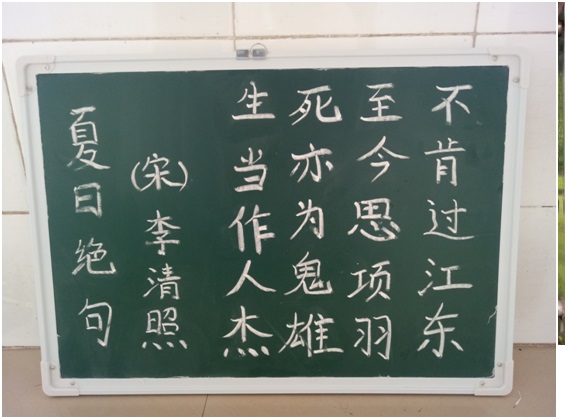 夏日绝句
(宋)李清照
生当作人杰
死亦为鬼雄
至今思项羽
不肯过江东